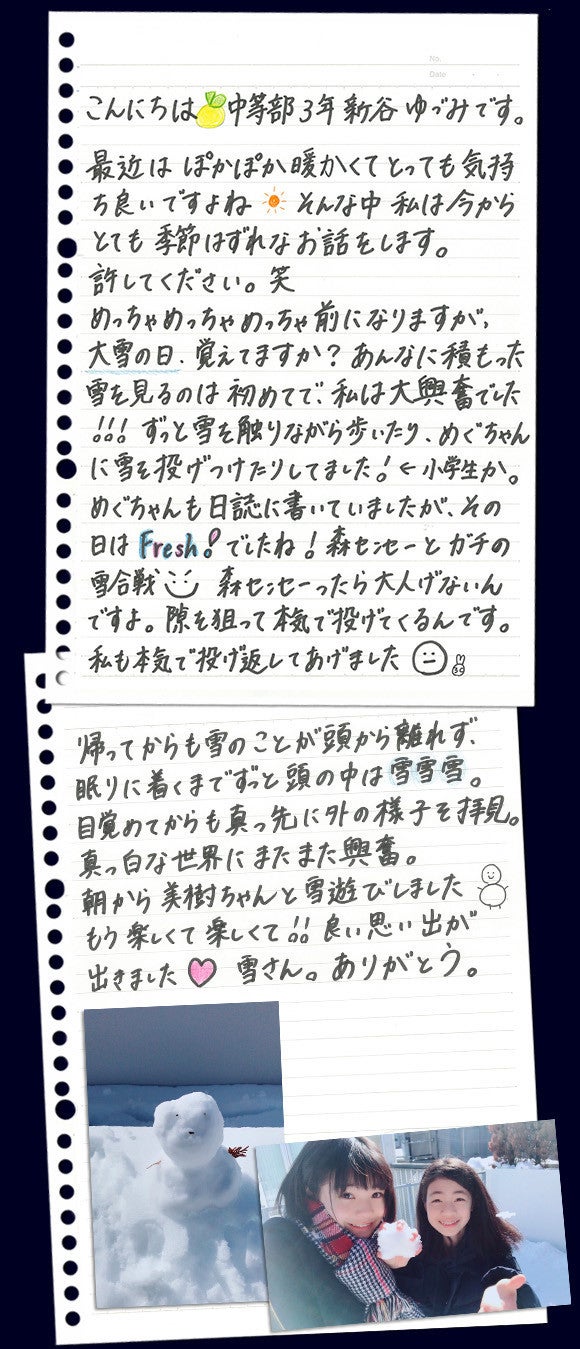 No.
Date
こんにちは中等部3年 新谷 ゆづみです。
最近は ぽかぽか暖かくてとっても気持
ち良いですよね そんな中 私は今から
とても 季節はずれなお話をします。
許してください。笑
めっちゃめっちゃめっちゃ前になりますが、
大雪の日、覚えてますか?あんなに積もった
雪を見るのは 初めてで、私は大興奮でした
!!! ずっと雪を触りながら歩いたり、めぐちゃん
に雪を投げつけたりしてました!←小学生か。
めぐちゃんも日誌に書いていましたが、その
日は Fresh!でしたね!森センセーとガチの
雪合戦 森センセーったら大人げないん
ですよ。隙を狙って本気で投げてくるんです。
私も本気で投げ返してあげました
帰ってからも雪のことが頭から離れず、
眠りに着くまでずっと頭の中は雪雪雪。
目覚めてからも真っ先に外の様子を拝見。
真っ白な世界にまたまた興奮。
朝から美樹ちゃんと雪遊びしました
もう楽しくて楽しくて!! 良い思い出が
出きました 雪さん。ありがとう。